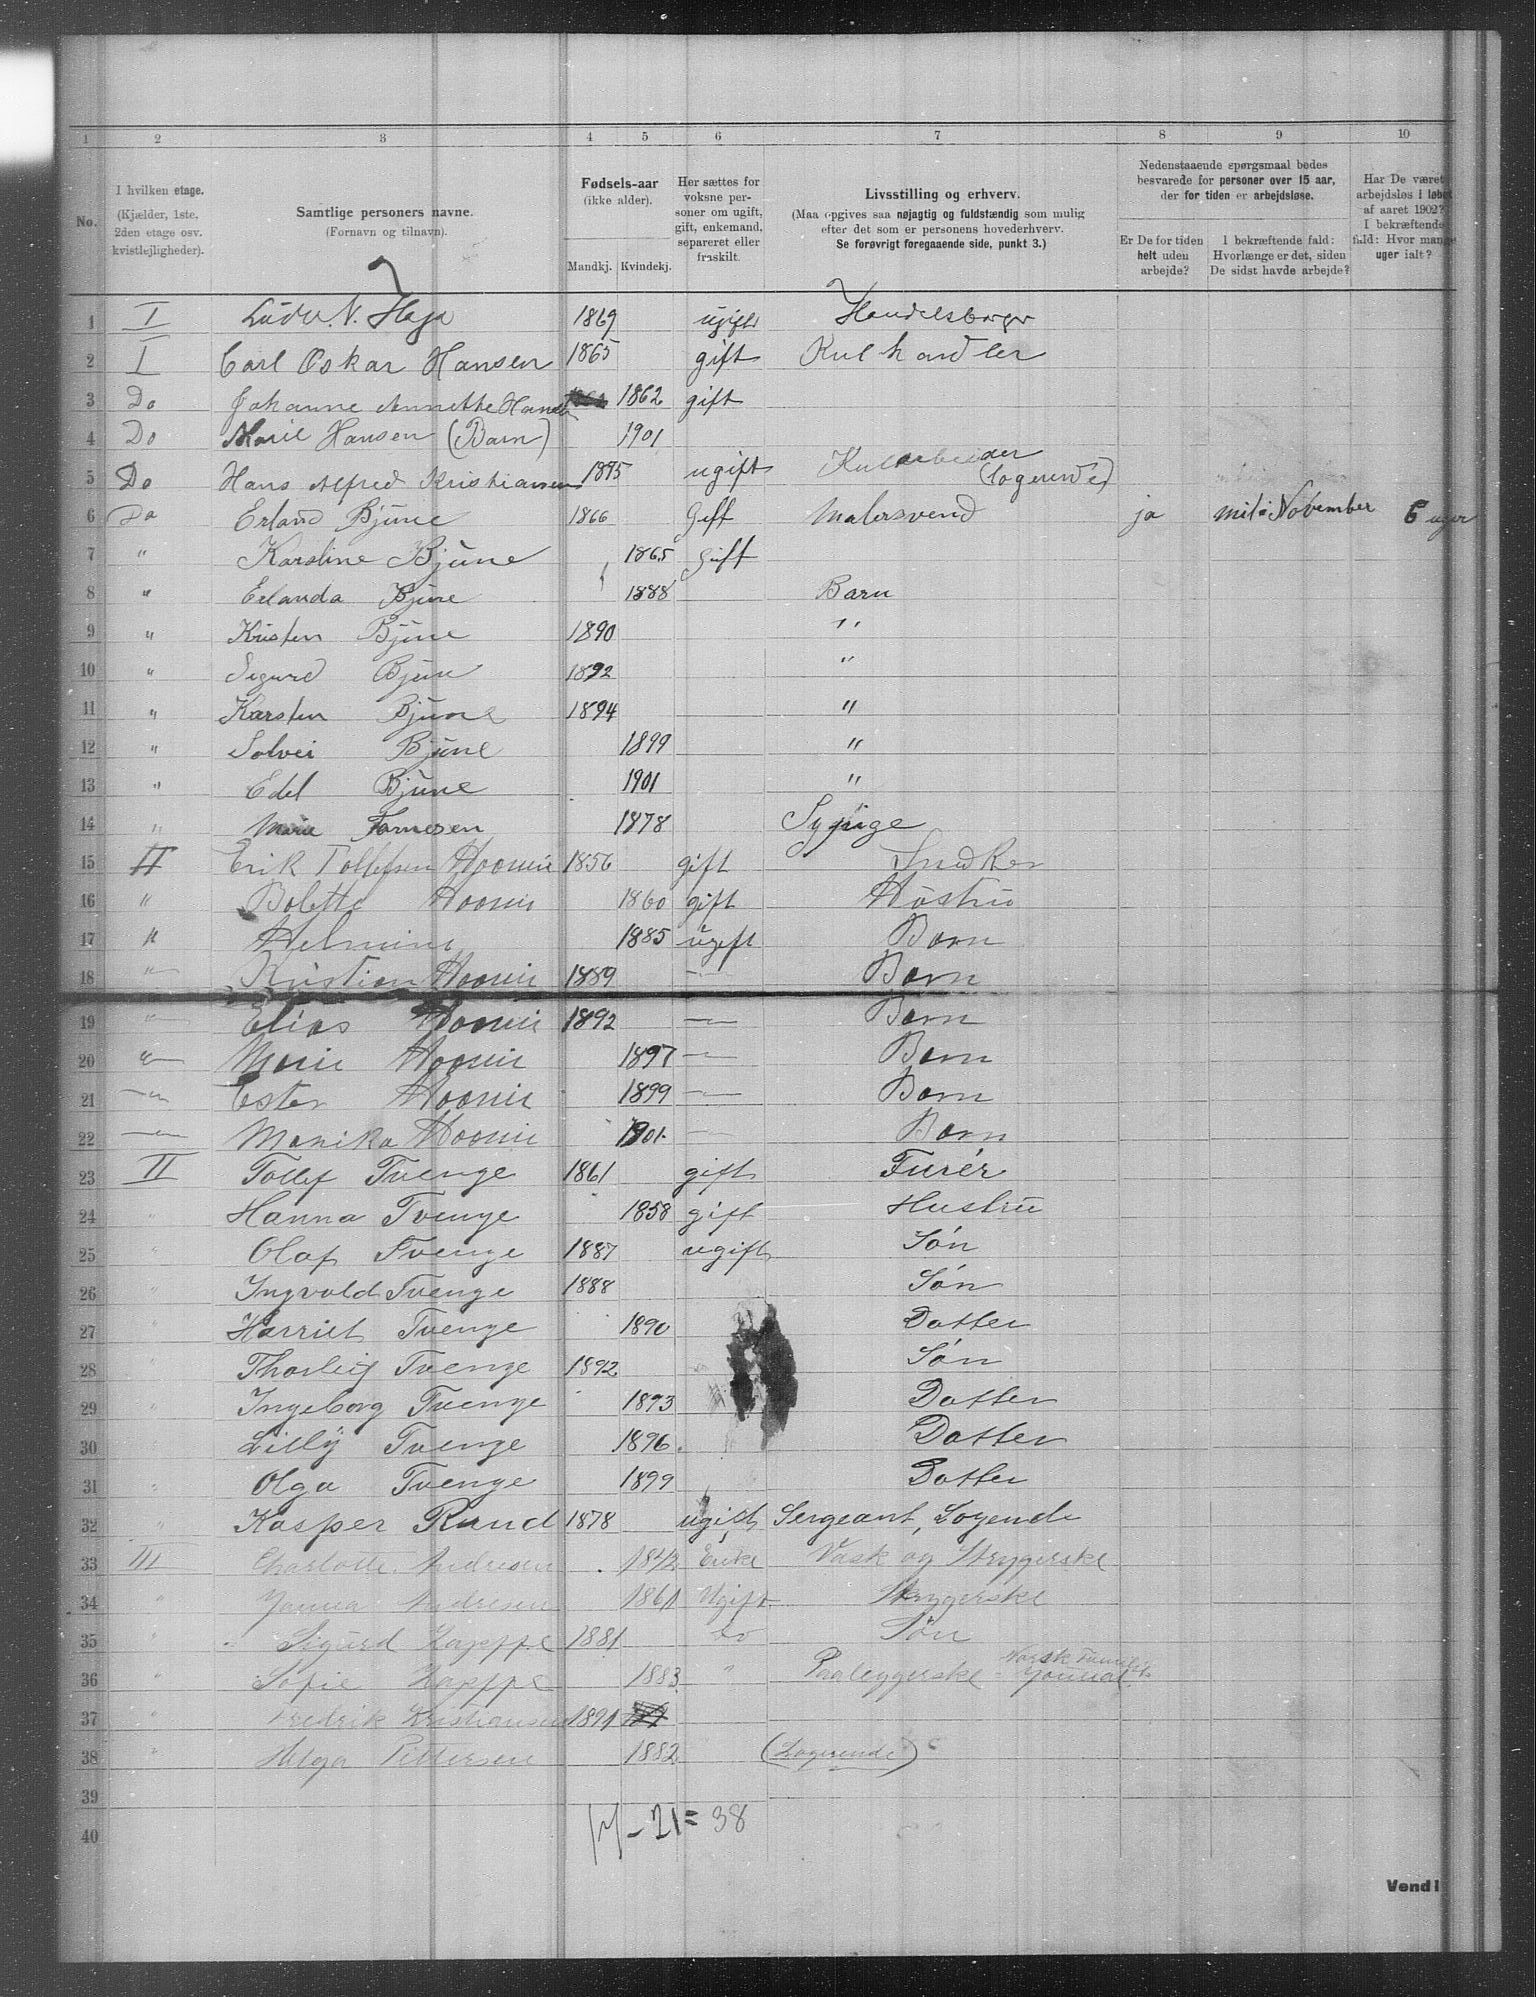 1 2 3 4 5 6 7 8 9 10
No.
I hvilken etage.
(Kjælder, 1ste,
2den etage osv.
kvistlejligheder).
Samtlige personers navne.
(Fornavn og tilnavn).
Fødsels-aar
(ikke alder).
Mandkj. Kvindekj.
Her sættes for
voksne per-
soner om ugift,
gift, enkemand,
separeret eller
fraskilt.
Livsstilling og erhverv.
(Maa opgives saa nøjagtig og fuldstændig som mulig
efter det som er personens hovederhverv.
Se forøvrigt foregaaende side, punkt 3.)
Nedenstaaende spørgsmaal bedes
besvarede for personer over 15 aar,
der for tiden er arbejdsløse.
Er De for tiden
helt uden
arbejde?
I bekræftende fald:
Hvorlænge er det, siden
De sidst havde arbejde?
Har De været
arbejdsløs i løbet
af aaret 1902?
I bekræftende
fald: Hvor mange
uger ialt?
1 I N. Haga 1869 ugift Handelsborger
2 I Carl Oskar Hansen 1865 gift Kulhandler
3 Do Johanne Annette Hansen 1862 gift
4 Do Marie Hansen (Barn) 1901
5 Do Hans Alfred Kristiansen 1875 ugift Kularbeider (logerende)
6 Do Erland Bjüne 1866 Gift Malersvend ja midt i November 6 uger
7 " Karstine Bjüne 1865 gift
8 " Erlanda Bjüne 1888 Barn
9 " Kristen Bjüne 1890 "
10 " Sigurd Bjüne 1892 "
11 " Karsten Bjüne 1894 "
12 " Solvei Bjüne 1899 "
13 " Edel Bjüne 1901 "
14 " Marie Tornesen 1878 Sypige
15 II Erik Tollefsen 1856 gift Snedker
16 " Bolette 1860 gift Hüstrü
17 " 1885 ugift Barn
18 " Kristian 1889 — Barn
19 " Elias 1892 — Barn
20 " Marie 1897 — Barn
21 " Ester 1899 — Barn
22 " Monika 1901 — Barn
23 II Tollef Tvenge 1861 gift Furér
24 " Hanna Tvenge 1858 gift Hustrü
25 " Olaf Tvenge 1887 ugift Søn
26 " Ingvald Tvenge 1888 Søn
27 " Harriet Tvenge 1890 Datter
28 " Thorleif Tvenge 1892 Søn
29 " Ingeborg Tvenge 1893 Datter
30 " Lilly Tvenge 1896 Datter
31 " Olga Tvenge 1899 Datter
32 " Kasper Rund 1878 ugift Sergeant, Logende
33 III Charlotte Andresen 1842 Enke Vask og Strygerske
34 " Janna Andresen 1861 Ugift Strygerske
35 " Sigurd Kappfe 1881 do Søn
36 " Sofie Kappfe 1883 " Paaleggerske Norsk Familie Journal
37 " Fredrik Kristiansen 1891
38 " Helga Pettersen 1882 (Logerende)
39
40
17 – 21 = 38
Vend!